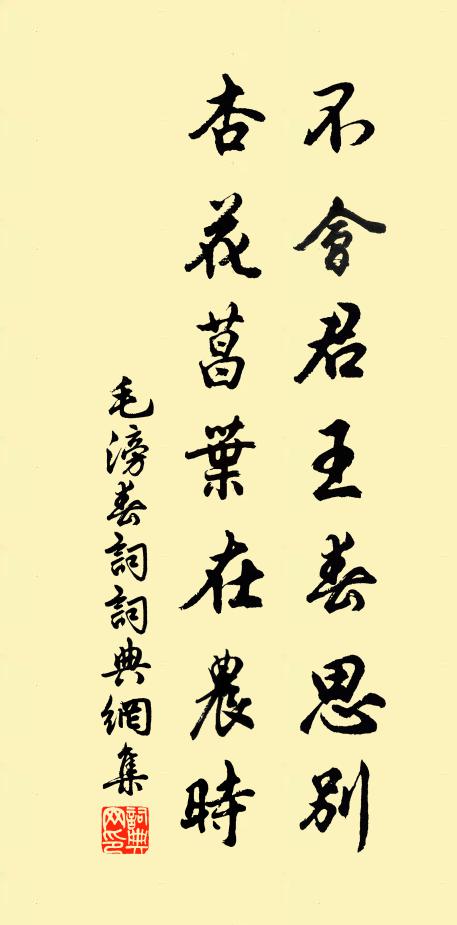 不會君王春思別
杏花菖葉在農時
毛滂春詞詞典網集
詞典網印